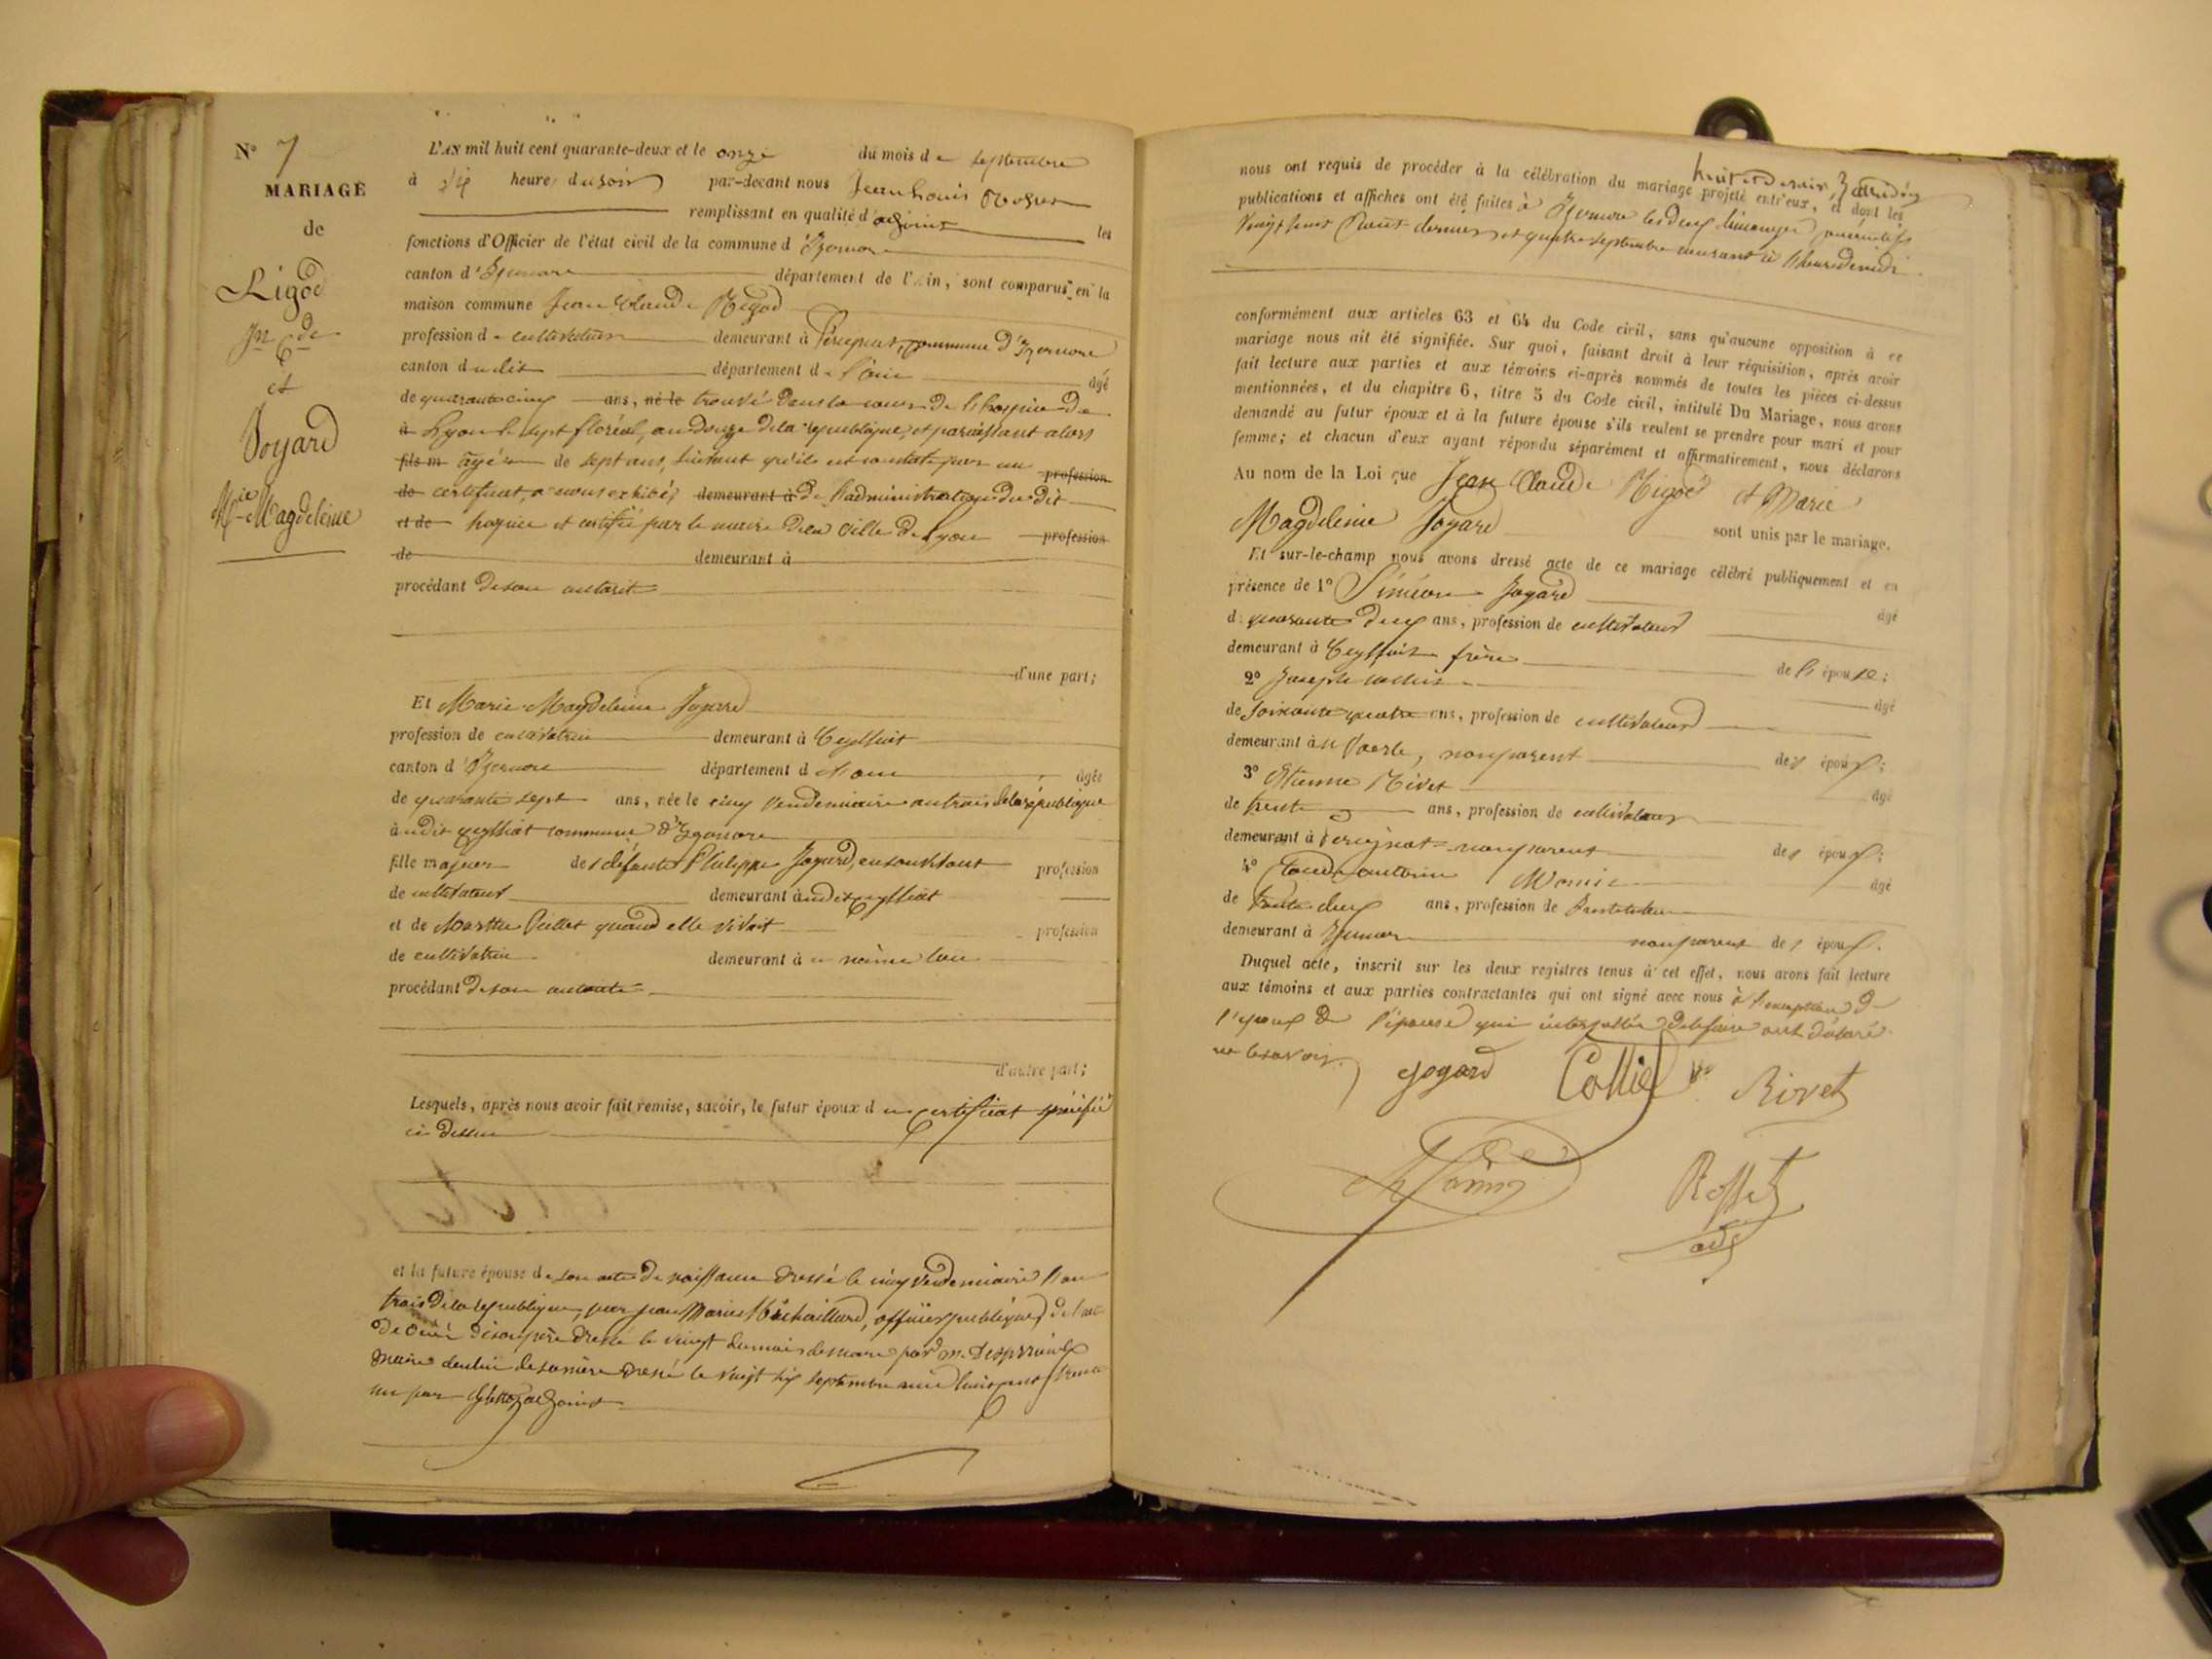 N° 7
MARIAGE
de
Rigod
Jn Cde
et
Joyard
Mie Magdeleine
L'AN mil huit cent quarante-deux et le onze du mois de septembre
à six heures du soir par-devant nous Jean Louis Rosset
remplissant en qualité d'adjoint les
fonctions d'Officier de l'état civil de la commune d'Izernore
canton d'Izernore département de l'Ain, sont comparus en la
maison commune Jean Claude Rigod
profession de cultivateur demeurant à Pérignat, commune d'Izernore
canton du dit département de l'ain âgé
de quarante cinq ans, né le trouvé dans la cour de l'hospice de
à Lyon le sept floréal, an douze de la république, et paraissant alors
fils m âgé de sept ans, suivant qu'il est constaté par un profession
de certificat, à nous exhibé, demeurant à de l'administration du dit
et de hospice et certifié par le maire de la ville de Lyon profession
de demeurant à
procédant de son autorité
d'une part;
Et Marie Magdeleine Joyard
profession de cultivatrice demeurant à Ceyssiat
canton d'Izernore département de l'ain âgée
de quarante sept ans, née le cinq vendémiaire an trois de la république
à udit Ceyssiat commune d'Izernore
fille majeure des défunts Philippe Joyard, en son vivant profession
de cultivateur demeurant à udit Ceyssiat
et de Marthe Pillet quand elle vivait profession
de cultivatrice demeurant à u même lieu
procédant de son autorité
d'autre part;
Lesquels, après nous avoir fait remise, savoir, le futur époux d u certificat spécifié
ci dessus
et la future épouse de son acte de naissance dressé le cinq vendémiaire l'an
trois de la république, par Jean Marie officier public, de l'acte
de décès de son père dressé le vingt du mois de mars par m.
maire de celui de sa mère dressé le vingt six septembre mil huit cent trente
un par adjoint
huit et demie
nous ont requis de procéder à la célébration du mariage projeté entr'eux, et dont les
publications et affiches ont été faites à Izernore les deux dimanches consécutifs
vingt huit août dernier et quatre septembre courant à l'heure de midi
conformément aux articles 63 et 64 du Code civil, sans qu'aucune opposition à ce
mariage nous ait été signifiée. Sur quoi, faisant droit à leur réquisition, après avoir
fait lecture aux parties et aux témoins ci-après nommés de toutes les pièces ci-dessus
mentionnées, et du chapitre 6, titre 5 du Code civil, intitulé Du Mariage, nous avons
demandé au futur époux et à la future épouse s'ils veulent se prendre pour mari et pour
femme; et chacun d'eux ayant répondu séparément et affirmativement, nous déclarons
Au nom de la Loi que Jean Claude Rigod et Marie
Magdeleine Joyard sont unis par le mariage.
Et sur-le-champ nous avons dressé acte de ce mariage célébré publiquement et en
présence de 1° Siméon Joyard âgé
de quarante deux ans, profession de cultivateur
demeurant à Ceyssiat frère de l'épouse;
2° Joseph Collet âgé
de soixante quatre ans, profession de cultivateur
demeurant à non parent des époux;
3° Etienne Rivet âgé
de trente ans, profession de cultivateur
demeurant à Pérignat non parent des époux;
4° Claude Antoine âgé
de trente deux ans, profession de Instituteur
demeurant à Izernore non parent des époux.
Duquel acte, inscrit sur les deux registres tenus à cet effet, nous avons fait lecture
aux témoins et aux parties contractantes qui ont signé avec nous à l'exception de
l'époux & l'épouse qui interpellés de le faire ont déclaré
ne le savoir.
Joyard Collet Rivet
Rosset
adj